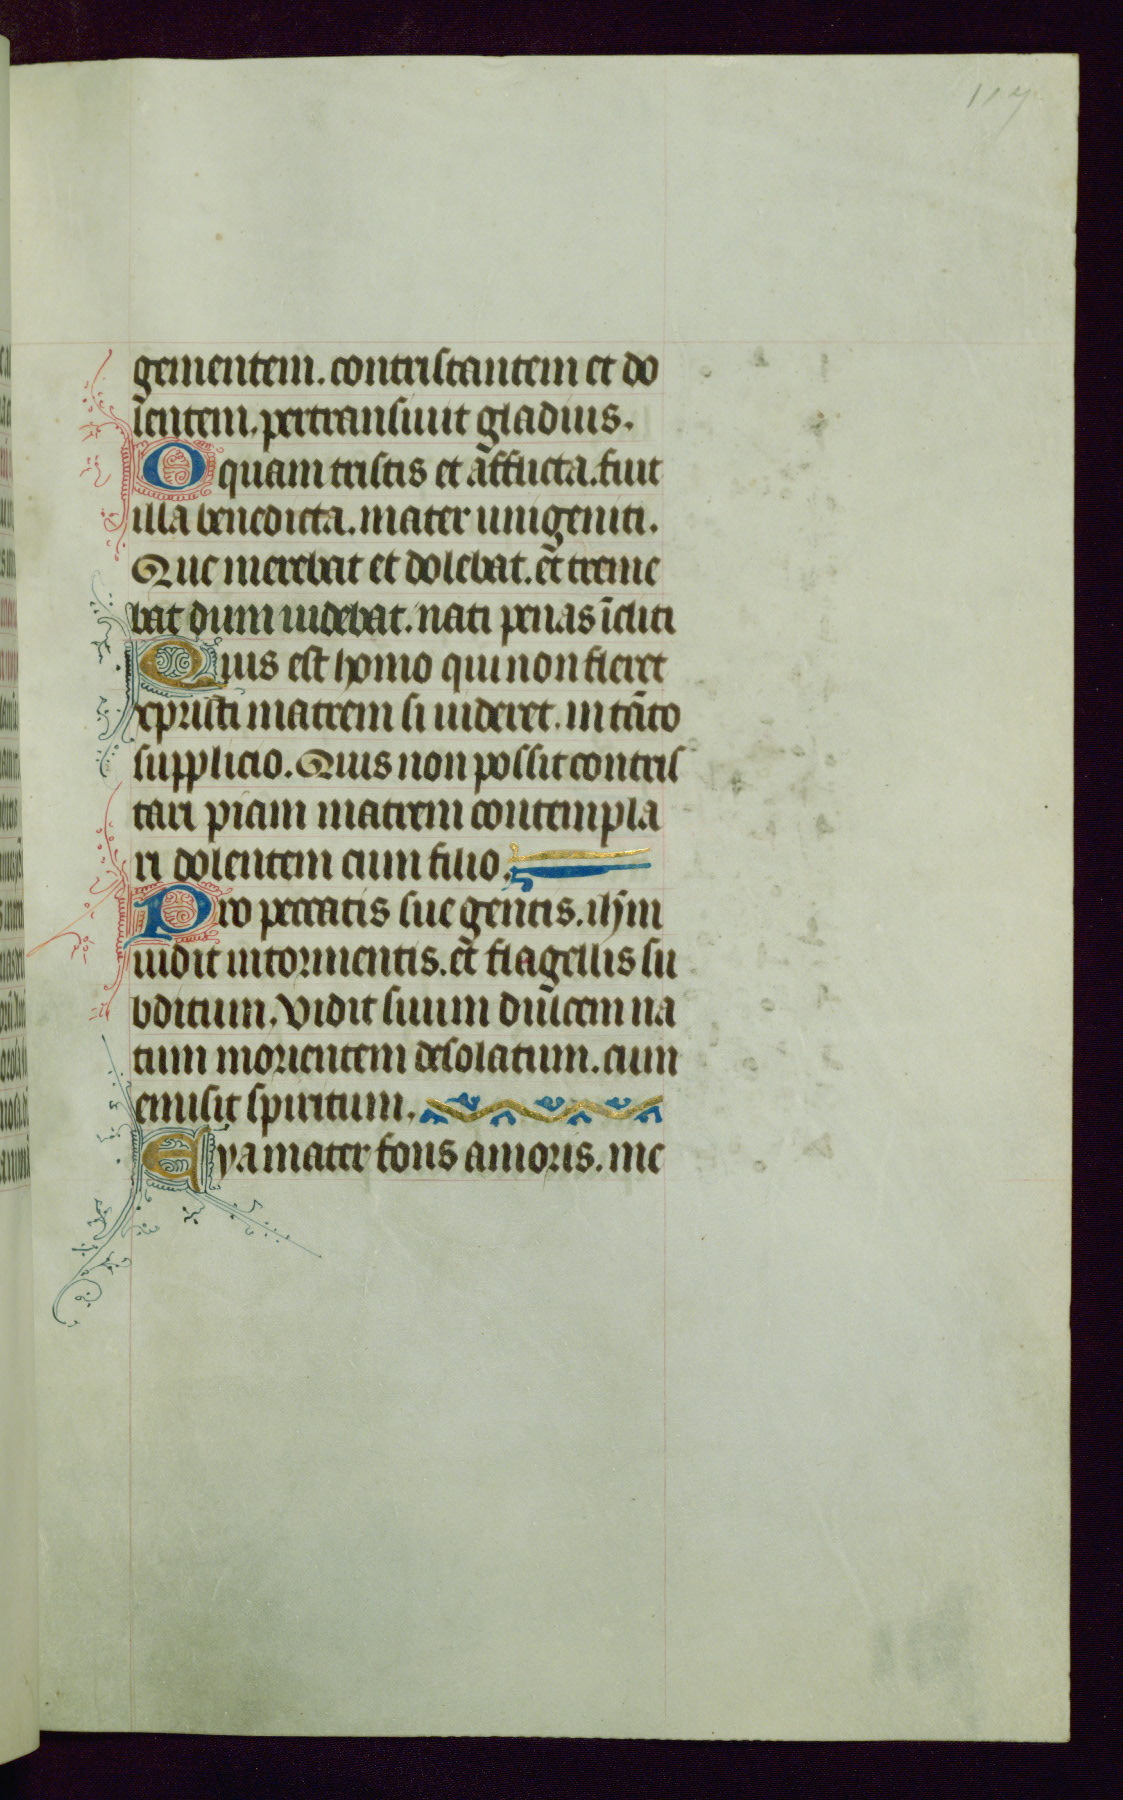 117
gementem. contristantem et do
lentem. pertransiuit gladius.
O quam tristis et afflicta. fuit
illa benedicta. mater unigeniti.
Que merebat et dolebat. et treme
bat dum uidebat. nati penas īcliti
Quis est homo qui non fleret
xpristi matrem si uideret. in tāto
supplicio. Quis non possit contris
tari piam matrem contempla
ri dolentem cum filio.
Pro peccatis sue gentis. ihm̄
uidit in tormentis. et flagellis su
bditum. Vidit suum dulcem na
tum morientem desolatum. cum
emisit spiritum.
Eya mater fons amoris. me